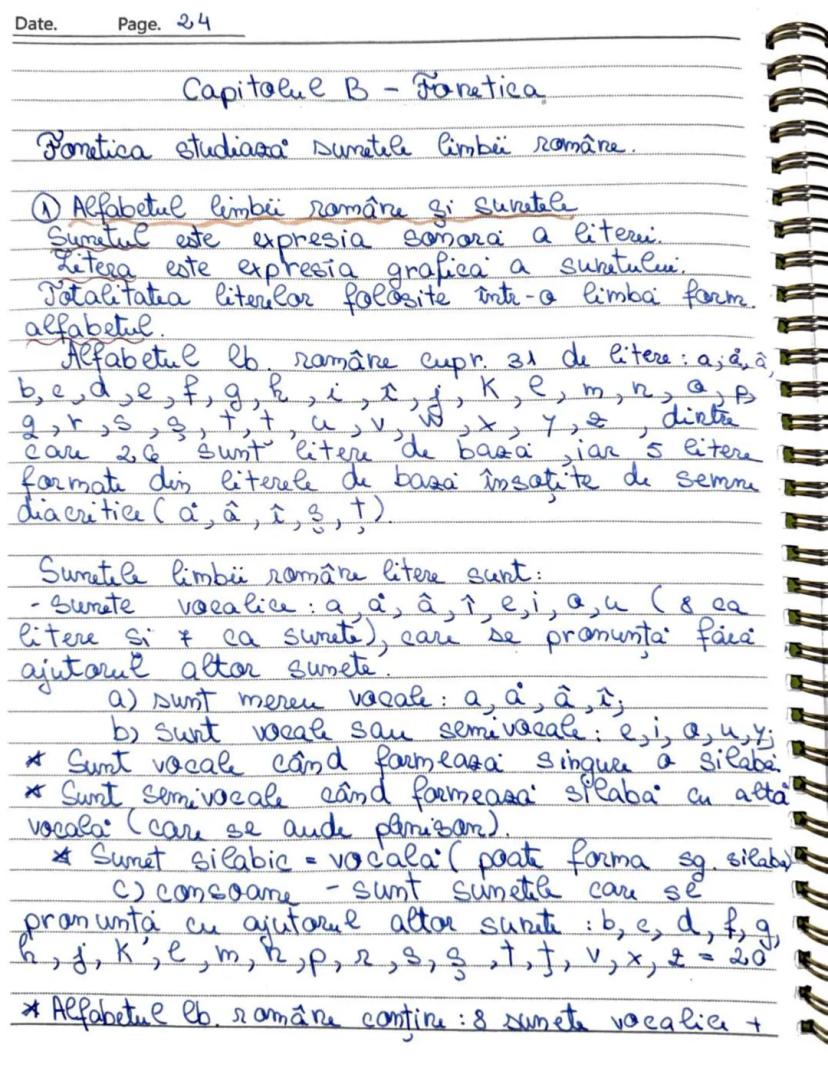 Date. Page. 24
Capitolul B - Fonetica
Fonetica studiază sunetele limbii române.
① Alfabetul limbii române și sunetele
Sunetul este expresia sonoră a literei.
Litera este expresia grafică a sunetului.
Totalitatea literelor folosite într-o limbă form.
alfabetul.
Alfabetul lb. române cupr. 31 de litere: a, ă, â,
b, c, d, e, f, g, h, i, î, j, K, l, m, n, o, p,
q, r, s, ș, t, ț, u, v, w, x, y, z, dintre
care 26 sunt litere de bază, iar 5 litere
formate din literele de bază însoțite de semne
diacritice (ă, â, î, ș, ț).
Sunetele limbii române litere sunt:
- sunete vocalice: a, ă, â, î, e, i, o, u (8 ca
litere si 7 ca sunete), care se pronunță fără
ajutorul altor sunete.
a) sunt mereu vocale: a, ă, â, î;
b) sunt vocale sau semivocale: e, i, o, u, y;
* Sunt vocale când formează singure o silabă.
* Sunt semivocale când formează silabă cu altă
vocală (care se aude plenison).
* Sunet silabic = vocală (poate forma sg. silabă)
c) consoane - sunt sunetele care se
pronunță cu ajutorul altor sunete: b, c, d, f, g,
h, j, K, l, m, n, p, r, s, ș, t, ț, v, x, z = 20
* Alfabetul lb. române conține: 8 sunete vocalice +